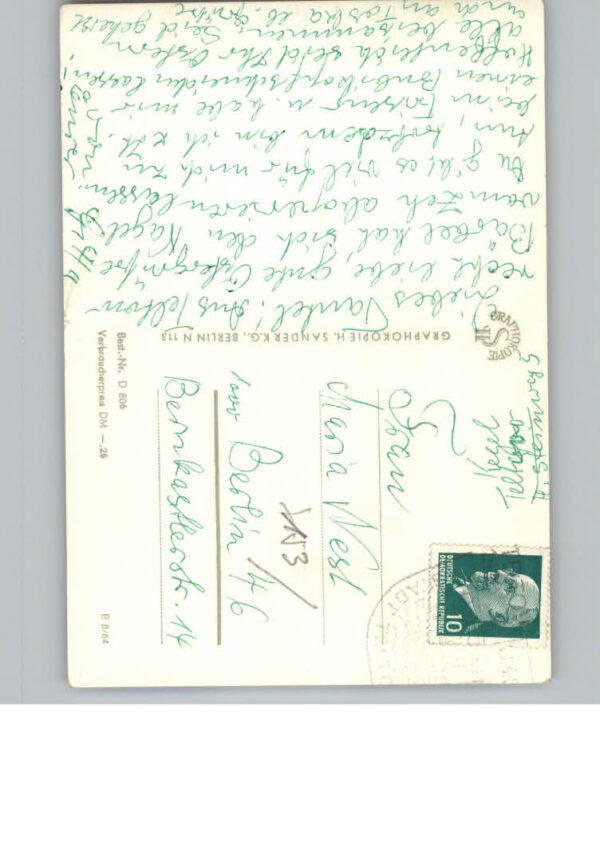 Liebes Tantel! Aus Teltow
recht liebe, gute Ostergrüße
Bärbel hat sich den Nagel
vom Zeh aboperieren lassen.
g'bt es viel für mich zu
tun, trotzdem bin ich z.Zt.
beim Friseur u. habe mir
einen Bubikopf schneiden lassen!
Hoffentlich seid Ihr Ostern
alle beisammen. Seid geherzt
und an Toska lb. Grüße
von Eurer
GRAPHOKOPIE H. SANDER K.G., BERLIN N 113
GRAPHOKOPIE
Best.-Nr. D 806
Verbraucherpreis DM —,25
B 8/64
Teltow
Frau
Maria Nest
1000 Berlin 46
Bernkastlerstr. 14
DEUTSCHE
DEMOKRATISCHE REPUBLIK
10